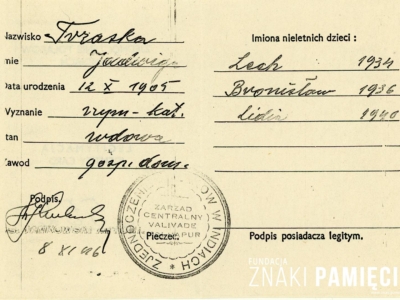 Nazwisko Traska
Imię Jadwiga
Data urodzenia 12 X 1905
Wyznanie rzym-kat.
Stan wdowa
Zawod gosp. dom.
Podpis.
8 XI 46
Pieczęć.
ZJEDNOCZENIE POLAKÓW W INDIACH
ZARZĄD
CENTRALNY
VALIVADE
Imiona nieletnich dzieci :
Lech 1934
Bronisław 1936
Lidia 1940
Podpis posiadacza legitym.
FUNDACJA
ZNAKI PAMIĘCI